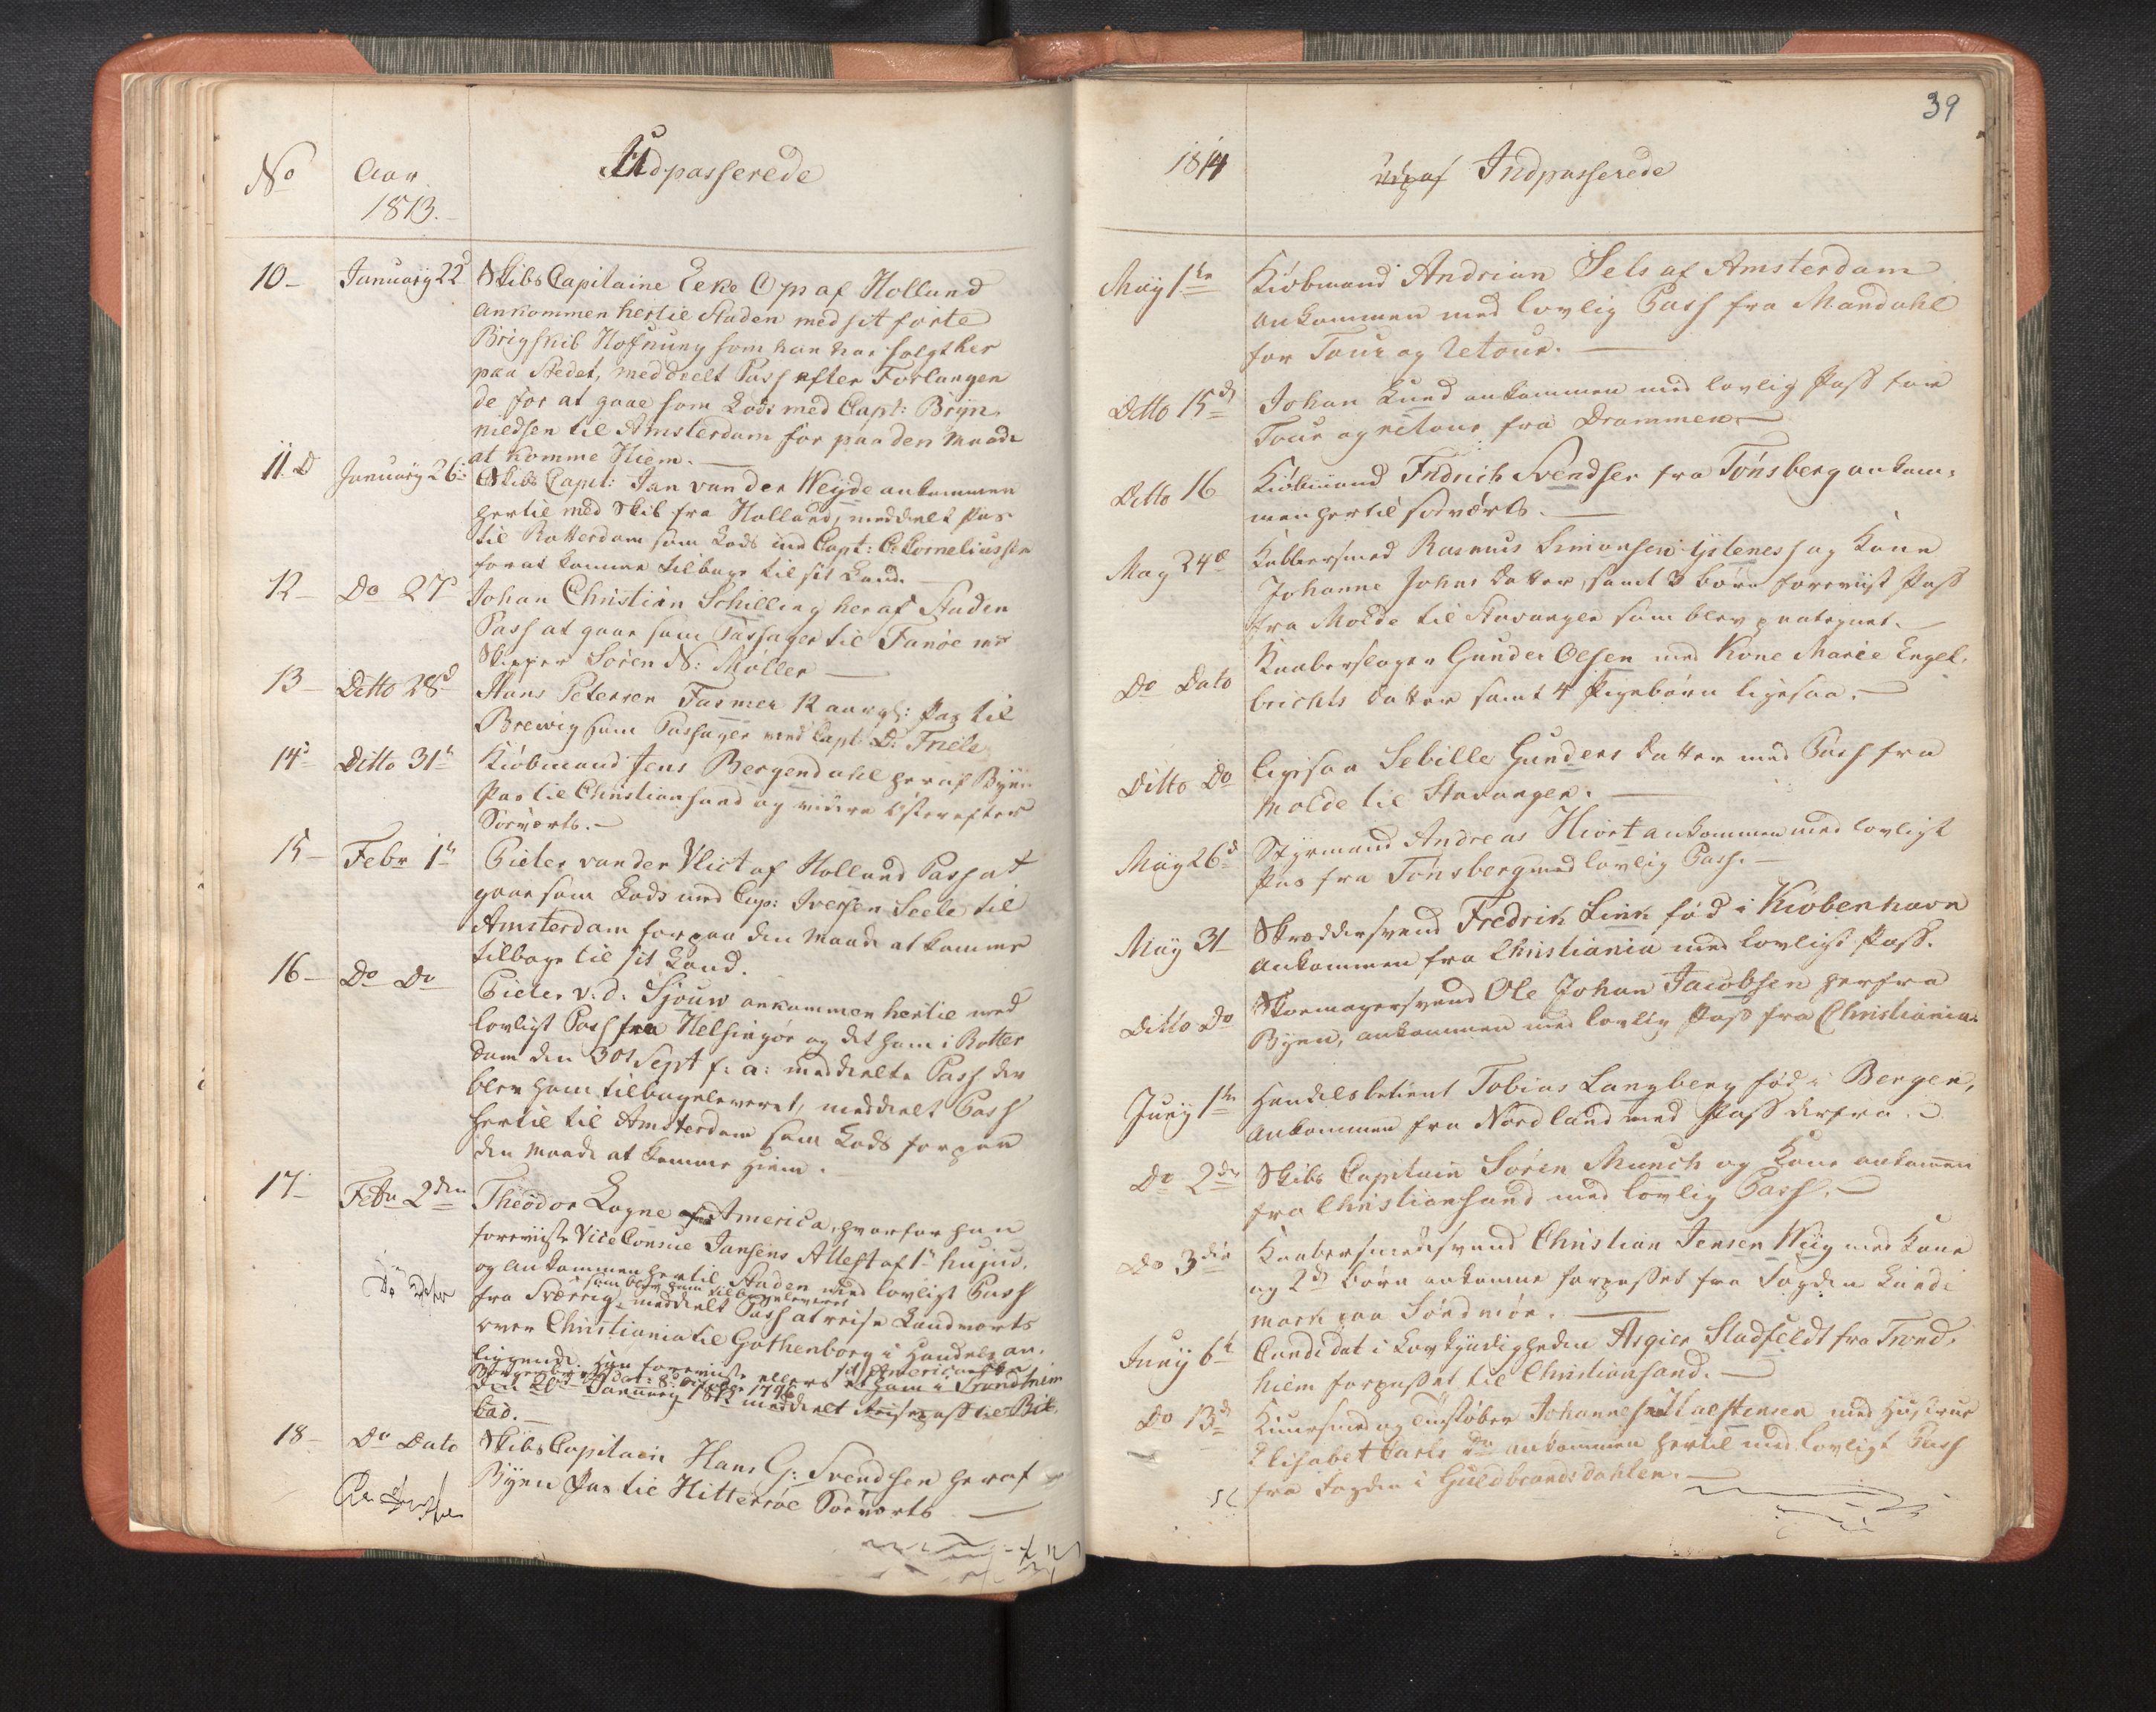 No
Aar
1813.
Udpasserede
10 -
January 22d
Skibs Capitaine Eeke Op af Holland
ankommen hertil Staden med sit førte
Brigskib Hofnung som han har solgt her
paa Stedet, meddeelt Pass efter Forlangen
de for at gaae som Lods med Capt: Bryn
nildsen til Amsterdam for paa den Maade
at komme Hiem. -
11. D
January 26
Skibs Capt: Jan van der Weyde ankommen
hertil med Skib fra Holland, meddelt Pas
til Rotterdam som Lods med Capt: C. Corneliussen
for at komme tilbage til sit Land.
12 -
Do 27
Johan Christian Schilling her af Staden
Pass at gaae som Passager til Fanøe med
Skipper Sören N: Møller -
13 -
Ditto 28d
Hans Petersen Fasmer 12 aar gl: Pas til
Brewig som Passager med Capt. D. Friele
14d
Ditto 31
Kiöbmand Jens Bergendahl her af Byen
Pas til Christiansand og videre Østerefter
Sørværts. -
15 -
Febr 1
Pieter van der Vlict af Holland Pass at
gaae som Lods med Cap: Iversen Seele til
Amsterdam for paa den Maade at komme
tilbage til sit Land.
16 -
Do Do
Pieter v: d: Sjouw ankommen hertil med
lovligt Pass fra Helsingör og det ham i Rotter
dam den 30t Sept f: a: meddelte Pass der
blev ham tilbageleveret, meddelt Pass
hertil til Amsterdam som Lods for paa
den Maade at komme Hiem.
17 -
Febr 2den
Theodor Logne America, hvorfor han
foreviiste Vice Consul Jansens Attest af 1t hujus.
og ankommen hertil Staden med lovligt Pass
som blev ham tilbageleveret
fra Sverrig - meddelt Pass at reise Landværts
over Christiania til Gothenborg i Handels an,
liggende. Han foreviiste ellers sit Americanske
Borgerbrev dat: 8 1796 ham i Trondhiem
den 20d January 1813 meddelt Reisepass til
bad. -
18 -
Do Dato
Skibs Capitain Hans G: Svendsen her af
Byen Pas til Hitterøe Sørværts -
39
1814
Indpasserede
May 1ste
Kiöbmand Andrian Sels af Amsterdam
ankommen med lovlig Pass fra Mandahl
for Tour og retour. -
Ditto 15d
Johan Lund ankommen med lovlig Pass for
Tour og retour fra Drammen. -
Ditto 16
Kiöbmand Fridrich Svendsen fra Tønsberg ankom,
men hertil søeværts. -
May 24d
Kobbersmed Rasmus Simonsen Ystenes og Kone
Johanne Johnsdatter, samt 3 børn foreviist Pass
fra Molde til Stavanger som blev paategnet. -
Do Dato
Kaaberslager Gunder Olsen med Kone Marie Engel,
brichts datter samt 4 Pigebørn ligesaa. -
Ditto Do
ligesaa Sebille Gunders datter med Pass fra
Molde til Stavanger. -
May 26d
Styrmand Andreas Hiort ankommen med lovligt
Pas fra Tönsberg med lovlig Pass. -
May 31
Skræddersvend Fredrik Link fød i Kiøbenhavn
ankommen fra Christiania med lovligt Pass.
Ditto Do
Skoemagersvend Ole Johan Jacobsen herfra
Byen, ankommen med lovlig Pass fra Christiania.
Juny 1ste
Handelsbetient Tobias Langberg fød i Bergen,
ankommen fra Nordland med Pass derfra.
Do 2den
Skibs Capitain Sören Munch og Kone ankommen
fra Christiansand med lovlig Pass. -
Do 3die
Kaabersmedsvend Christian Jensen Wiig med Kone
og 2d børn ankomne forpasset fra Fogden Landt
mark paa Søndmøre. -
Juny 6t
Candidat i Lovkyndigheden Asgier Stadfeldt fra Trond,
hiem forpasset til Christiansand. -
Do 13d
og Tinstøber Johannes med Hustrue
Elisabet Carls Dr ankommen hertil med lovligt Pass
fra Fogden i Guldbrandsdahlen. -